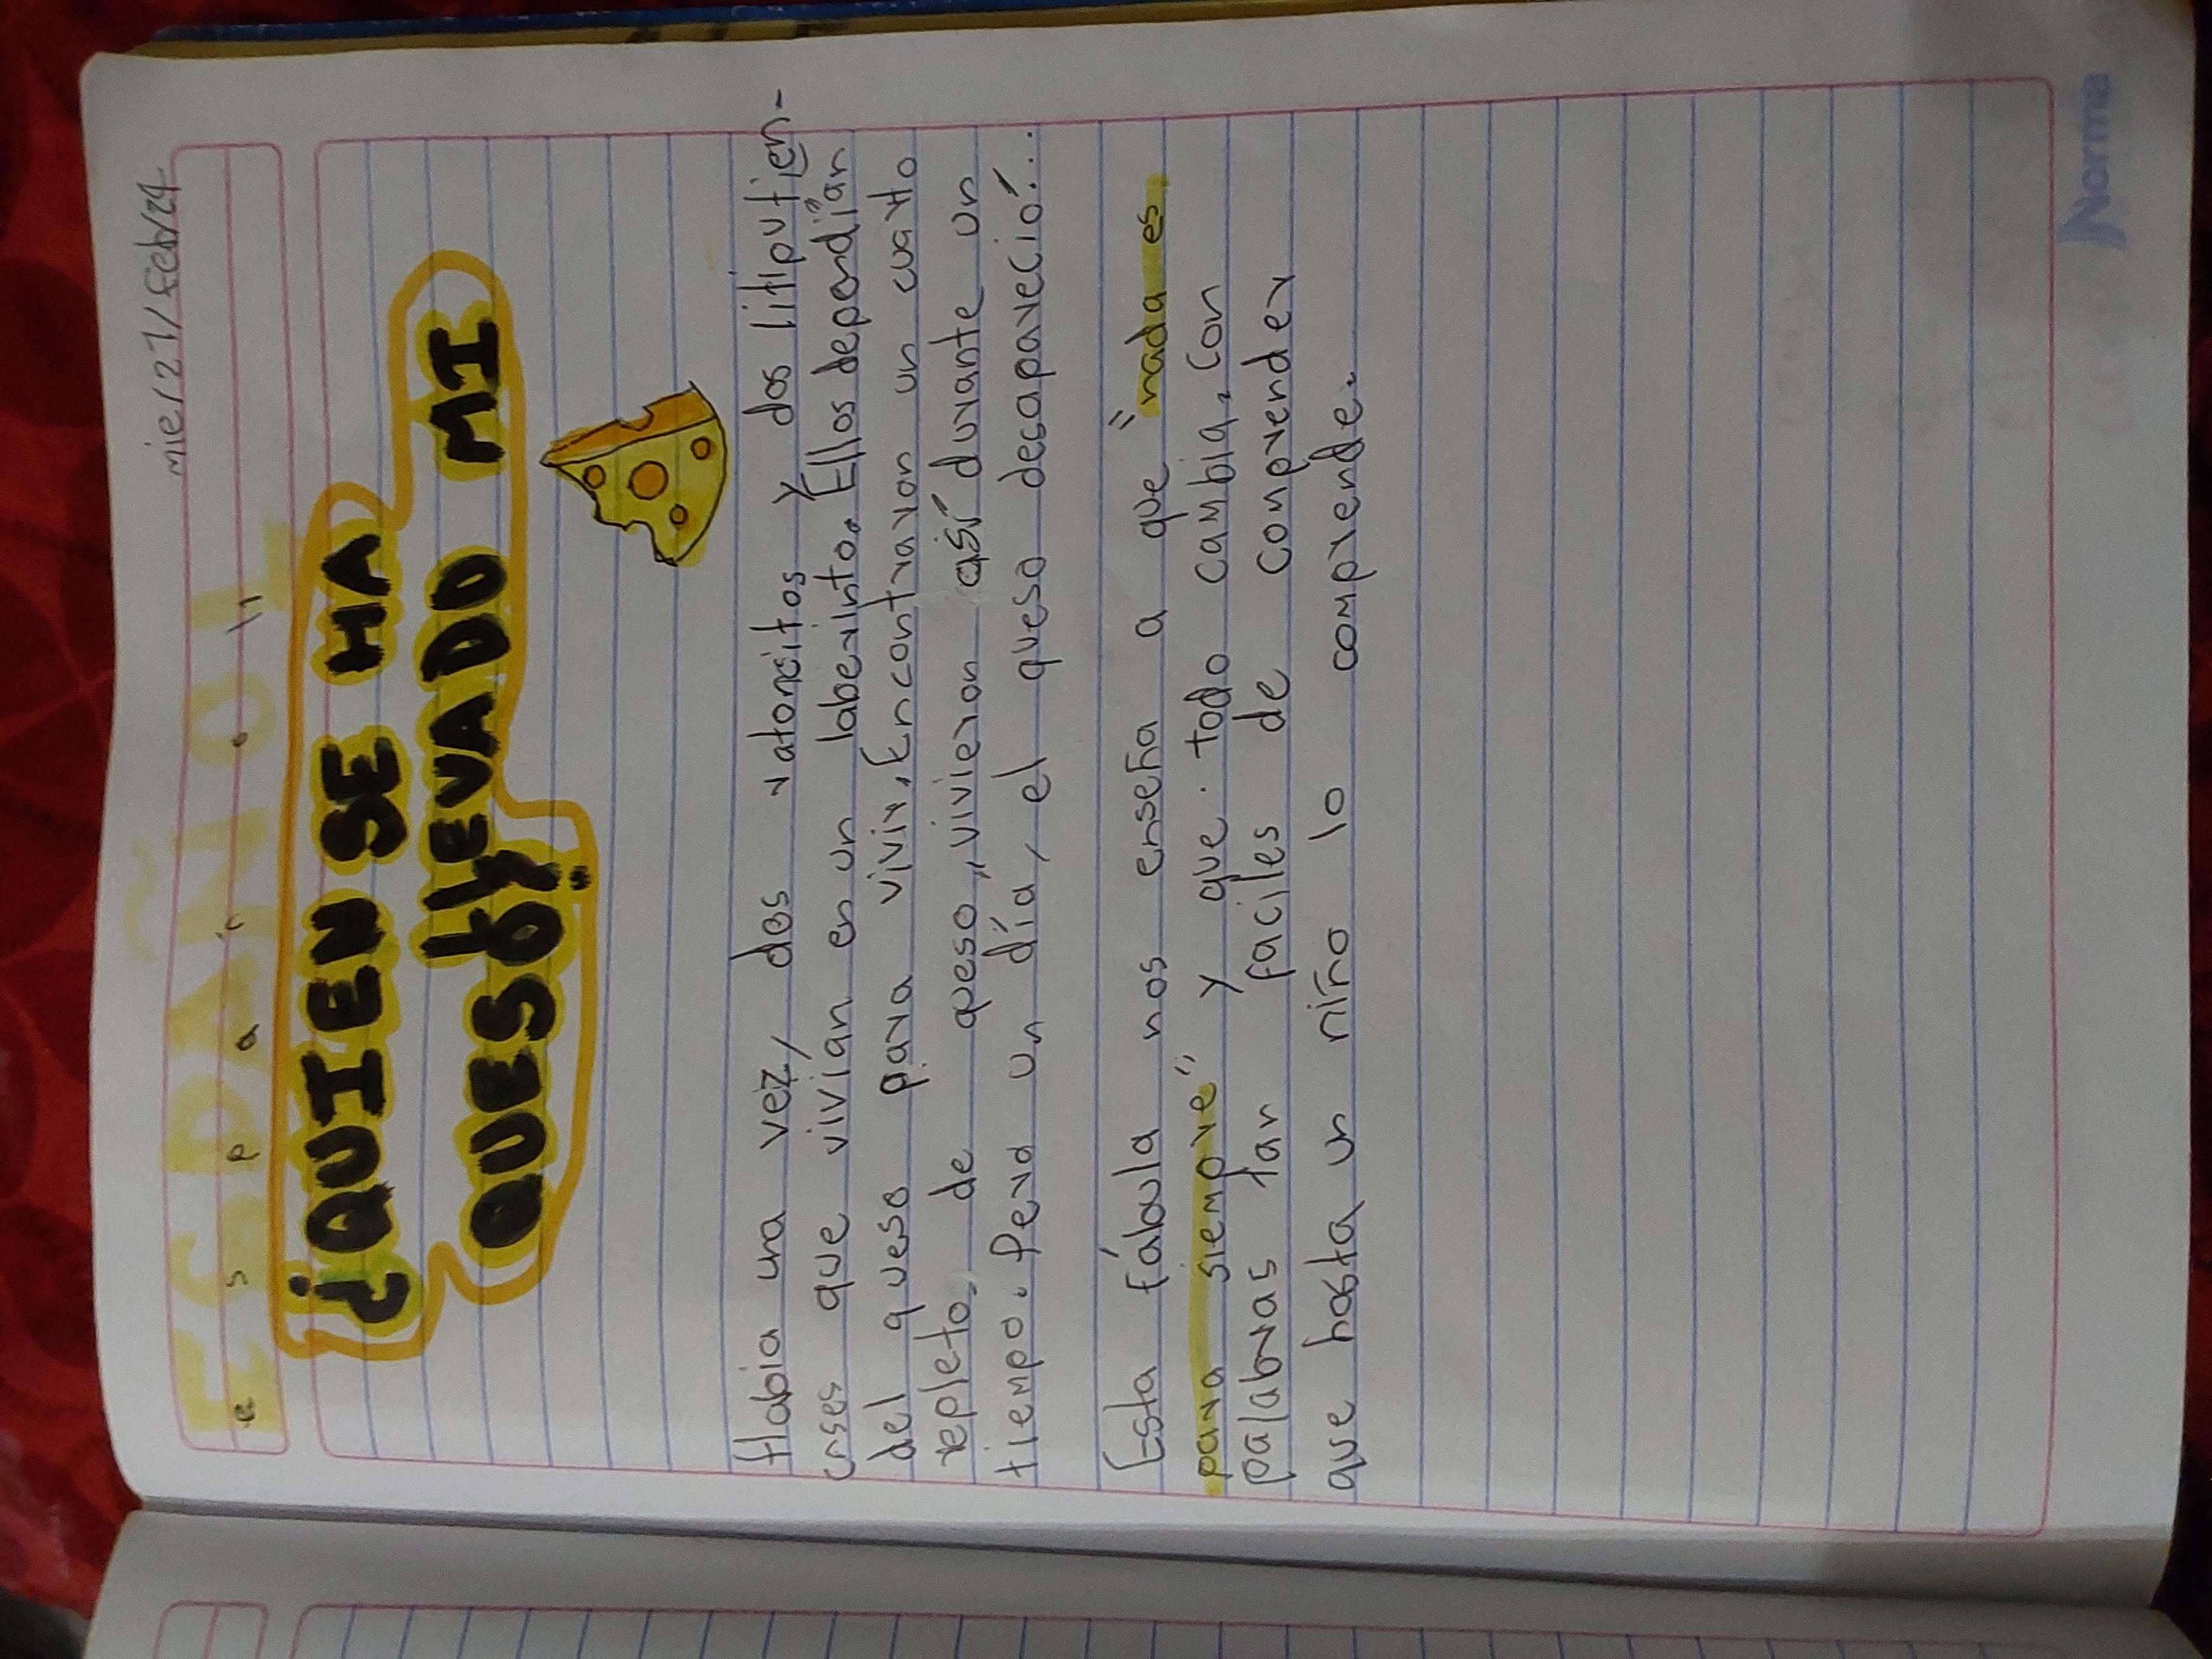 mie/21/feb/24
ESPAÑOL
español
¿QUIEN SE HA
LLEVADO MI
QUESO?
Habia una vez, dos ratoncitos y dos litiputien-
enses que vivían en un laberinto. Ellos dependían
del queso para vivir, Encontraron un cuarto
repleto, de queso, vivieron así durante un
tiempo. Pero un día, el queso desapareció...
Esta fábula nos enseña a que "nada es
para siempre" y que todo cambia, con
palabras tan faciles de comprender
que hasta un niño lo comprende.
Norma